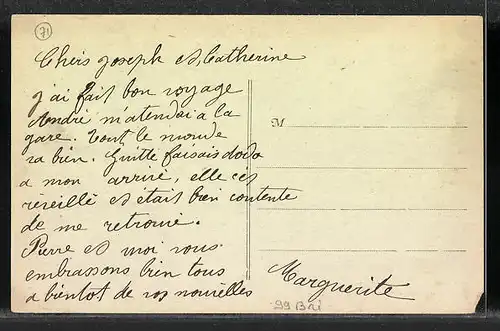 71
Chers joseph et Catherine
j'ai fait bon voyage
André m'atendai a la
gare. Tout le monde
va bien. Guitte faisais dodo
a mon arrivé, elle c'es
réveillé et était bien contente
de me retrouvé.
Pierre et moi vous
embrassons bien tous
a bientot de vos nouvelles
M
Marguerite
99 Bri